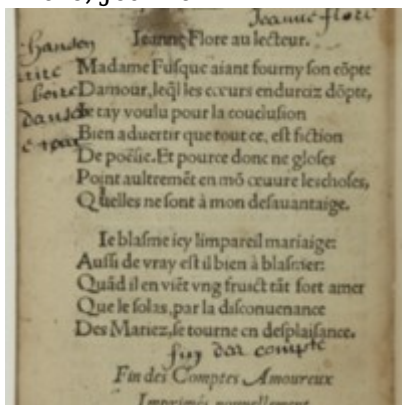 Jeanne flore
Ieanne Flore au lecteur.
chanson
Madame Fusque aiant fourny son cõpte
boire
Damour, leq̃l les cœurs endurciz dõpte,
danse
Ie tay voulu pour la conclusion
Bien aduertir que tout ce, est fiction
De poësie. Et pource donc ne gloses
Point aultremẽt en mõ œuure les choses,
Quelles ne sont à mon desauantaige.
Ie blasme icy limpareil mariaige:
Aussi de vray est il bien à blasmer:
Quãd il en viẽt vng fruict tãt fort amer
Que le solas, par la disconuenance
Des Mariez, se tourne en desplaisance.
compte
Fin des Comptes Amoureux
Imprimés nouuellement